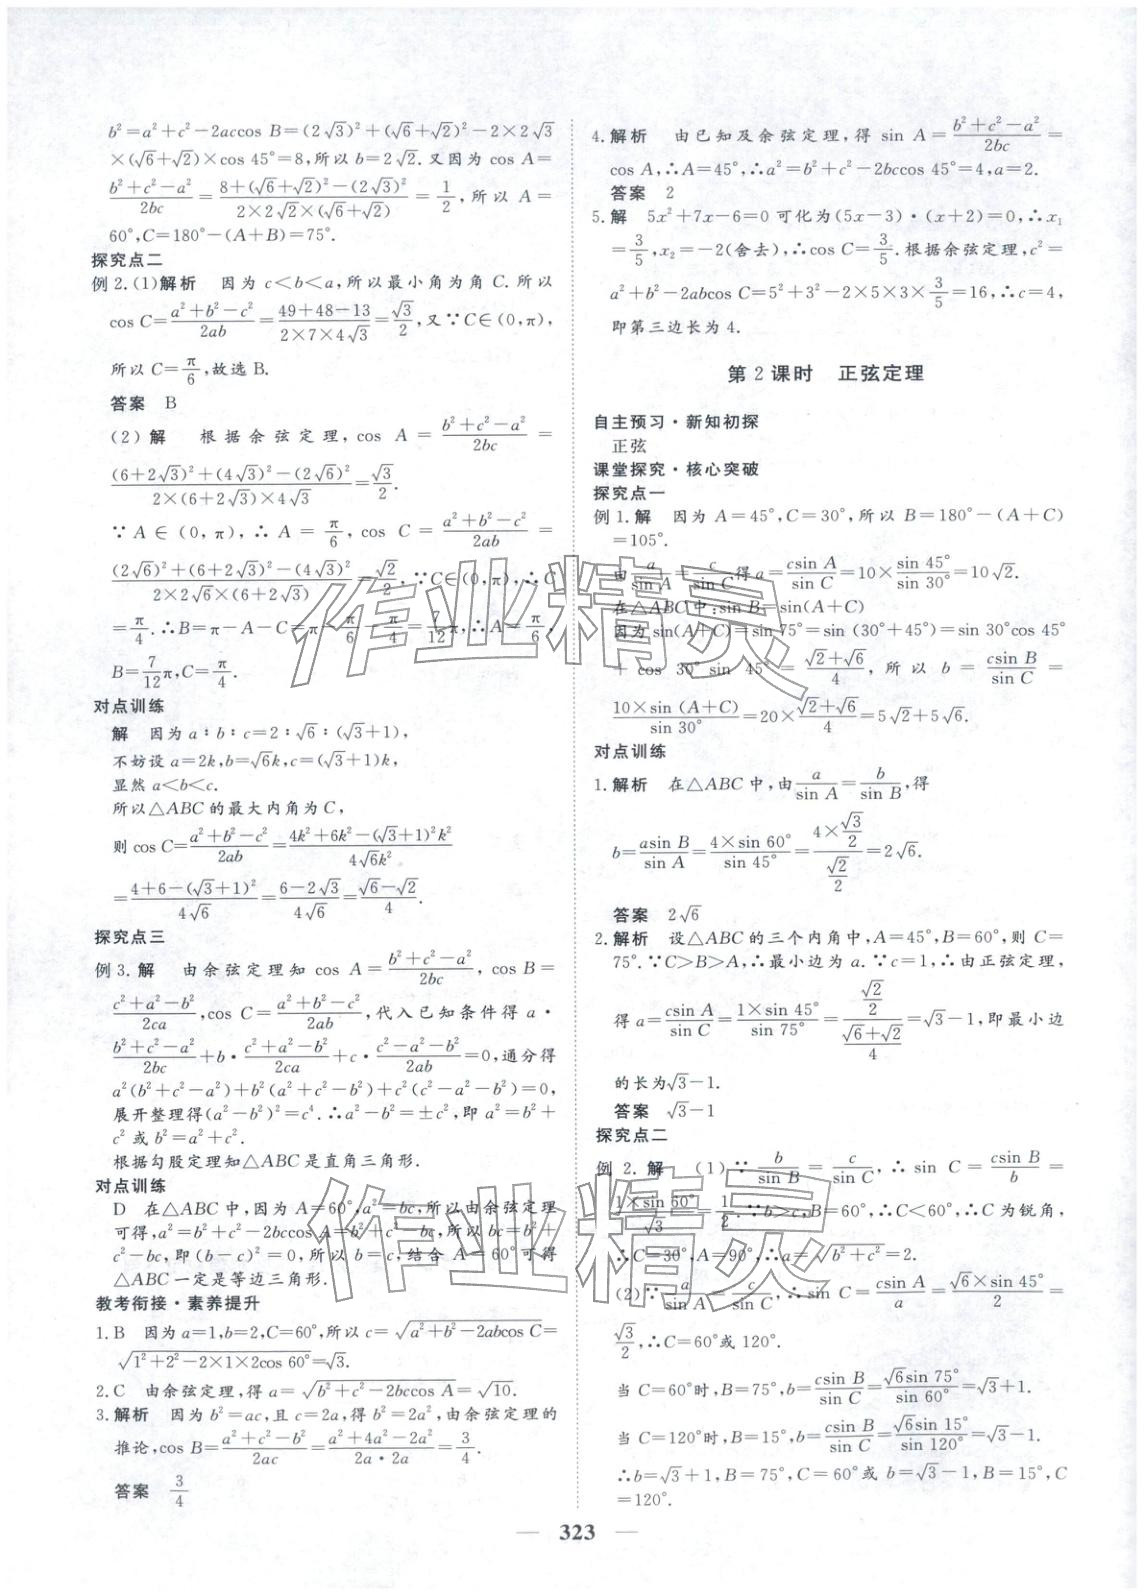 b²=a²+c²-2accos B=(2√3)²+(√6+√2)²-2×2√3
×(√6+√2)×cos 45°=8,所以 b=2√2.又因为 cos A=
(b²+c²-a²)/(2bc)=(8+(√6+√2)²-(2√3)²)/(2×2√2×(√6+√2))=1/2,所以 A=
60°,C=180°-(A+B)=75°.
探究点二
例 2.(1)解析 因为 c<b<a,所以最小角为角 C.所以
cos C=(a²+b²-c²)/(2ab)=(49+48-13)/(2×7×4√3)=√3/2,又∵C∈(0,π),
所以 C=π/6,故选 B.
答案 B
(2)解 根据余弦定理,cos A=(b²+c²-a²)/(2bc)=
((6+2√3)²+(4√3)²-(2√6)²)/(2×(6+2√3)×4√3)=√3/2.
∵A∈(0,π),∴A=π/6,cos C=(a²+b²-c²)/(2ab)=
((2√6)²+(6+2√3)²-(4√3)²)/(2×2√6×(6+2√3))=√2/2,∵C∈(0,π),∴C
=π/4.∴B=π-A-C=π-π/6-π/4=7/12π,∴A=π/6,
B=7/12π,C=π/4.
对点训练
解 因为 a∶b∶c=2∶√6∶(√3+1),
不妨设 a=2k,b=√6k,c=(√3+1)k,
显然 a<b<c.
所以△ABC 的最大内角为 C,
则 cos C=(a²+b²-c²)/(2ab)=(4k²+6k²-(√3+1)²k²)/(4√6k²)
=(4+6-(√3+1)²)/(4√6)=(6-2√3)/(4√6)=(√6-√2)/4.
探究点三
例 3.解 由余弦定理知 cos A=(b²+c²-a²)/(2bc),cos B=
(c²+a²-b²)/(2ca),cos C=(a²+b²-c²)/(2ab),代入已知条件得 a·
(b²+c²-a²)/(2bc)+b·(c²+a²-b²)/(2ca)+c·(c²-a²-b²)/(2ab)=0,通分得
a²(b²+c²-a²)+b²(a²+c²-b²)+c²(c²-a²-b²)=0,
展开整理得(a²-b²)²=c⁴.∴a²-b²=±c²,即 a²=b²+
c² 或 b²=a²+c².
根据勾股定理知△ABC 是直角三角形.
对点训练
D 在△ABC 中,因为 A=60°,a²=bc,所以由余弦定理
可得,a²=b²+c²-2bccos A=b²+c²-bc,所以 bc=b²+
c²-bc,即(b-c)²=0,所以 b=c,结合 A=60°可得
△ABC 一定是等边三角形.
教考衔接·素养提升
1.B 因为 a=1,b=2,C=60°,所以 c=√(a²+b²-2abcos C)=
√(1²+2²-2×1×2cos 60°)=√3.
2.C 由余弦定理,得 a=√(b²+c²-2bccos A)=√10.
3.解析 因为 b²=ac,且 c=2a,得 b²=2a²,由余弦定理的
推论,cos B=(a²+c²-b²)/(2ac)=(a²+4a²-2a²)/(2a·2a)=3/4.
答案 3/4
4.解析 由已知及余弦定理,得 sin A=(b²+c²-a²)/(2bc)=
cos A,∴A=45°,∴a²=b²+c²-2bccos 45°=4,a=2.
答案 2
5.解 5x²+7x-6=0 可化为(5x-3)·(x+2)=0,∴x₁
=3/5,x₂=-2(舍去),∴cos C=3/5.根据余弦定理,c²=
a²+b²-2abcos C=5²+3²-2×5×3×3/5=16,∴c=4,
即第三边长为 4.
第 2 课时 正弦定理
自主预习·新知初探
正弦
课堂探究·核心突破
探究点一
例 1.解 因为 A=45°,C=30°,所以 B=180°-(A+C)
=105°.
由a/sin A=c/sin C得 a=csin A/sin C=10×sin 45°/sin 30°=10√2.
在△ABC 中:sin B=sin(A+C)
因为 sin(A+C)=sin 75°=sin (30°+45°)=sin 30°cos 45°
+cos 30°sin 45°=(√2+√6)/4,所以 b=csin B/sin C=
10×sin (A+C)/sin 30°=20×(√2+√6)/4=5√2+5√6.
对点训练
1.解析 在△ABC 中,由a/sin A=b/sin B,得
b=asin B/sin A=4×sin 60°/sin 45°=(4×√3/2)/(√2/2)=2√6.
答案 2√6
2.解析 设△ABC 的三个内角中,A=45°,B=60°,则 C=
75°.∵C>B>A,∴最小边为 a.∵c=1,∴由正弦定理,
得 a=csin A/sin C=1×sin 45°/sin 75°=(√2/2)/((√6+√2)/4)=√3-1,即最小边
的长为√3-1.
答案 √3-1
探究点二
例 2.解 (1)∵b/sin B=c/sin C,∴sin C=csin B/b=
1×sin 60°/√3=1/2.∵b>c,B=60°,∴C<60°,∴C 为锐角,
∴C=30°,A=90°,∴a=√(b²+c²)=2.
(2)∵a/sin A=c/sin C,∴sin C=csin A/a=√6×sin 45°/2=
√3/2,∴C=60°或 120°.
当 C=60°时,B=75°,b=csin B/sin C=√6sin 75°/sin 60°=√3+1.
当 C=120°时,B=15°,b=csin B/sin C=√6sin 15°/sin 120°=√3-1.
∴b=√3+1,B=75°,C=60°或 b=√3-1,B=15°,C
=120°.
323
作业精灵
作业精灵